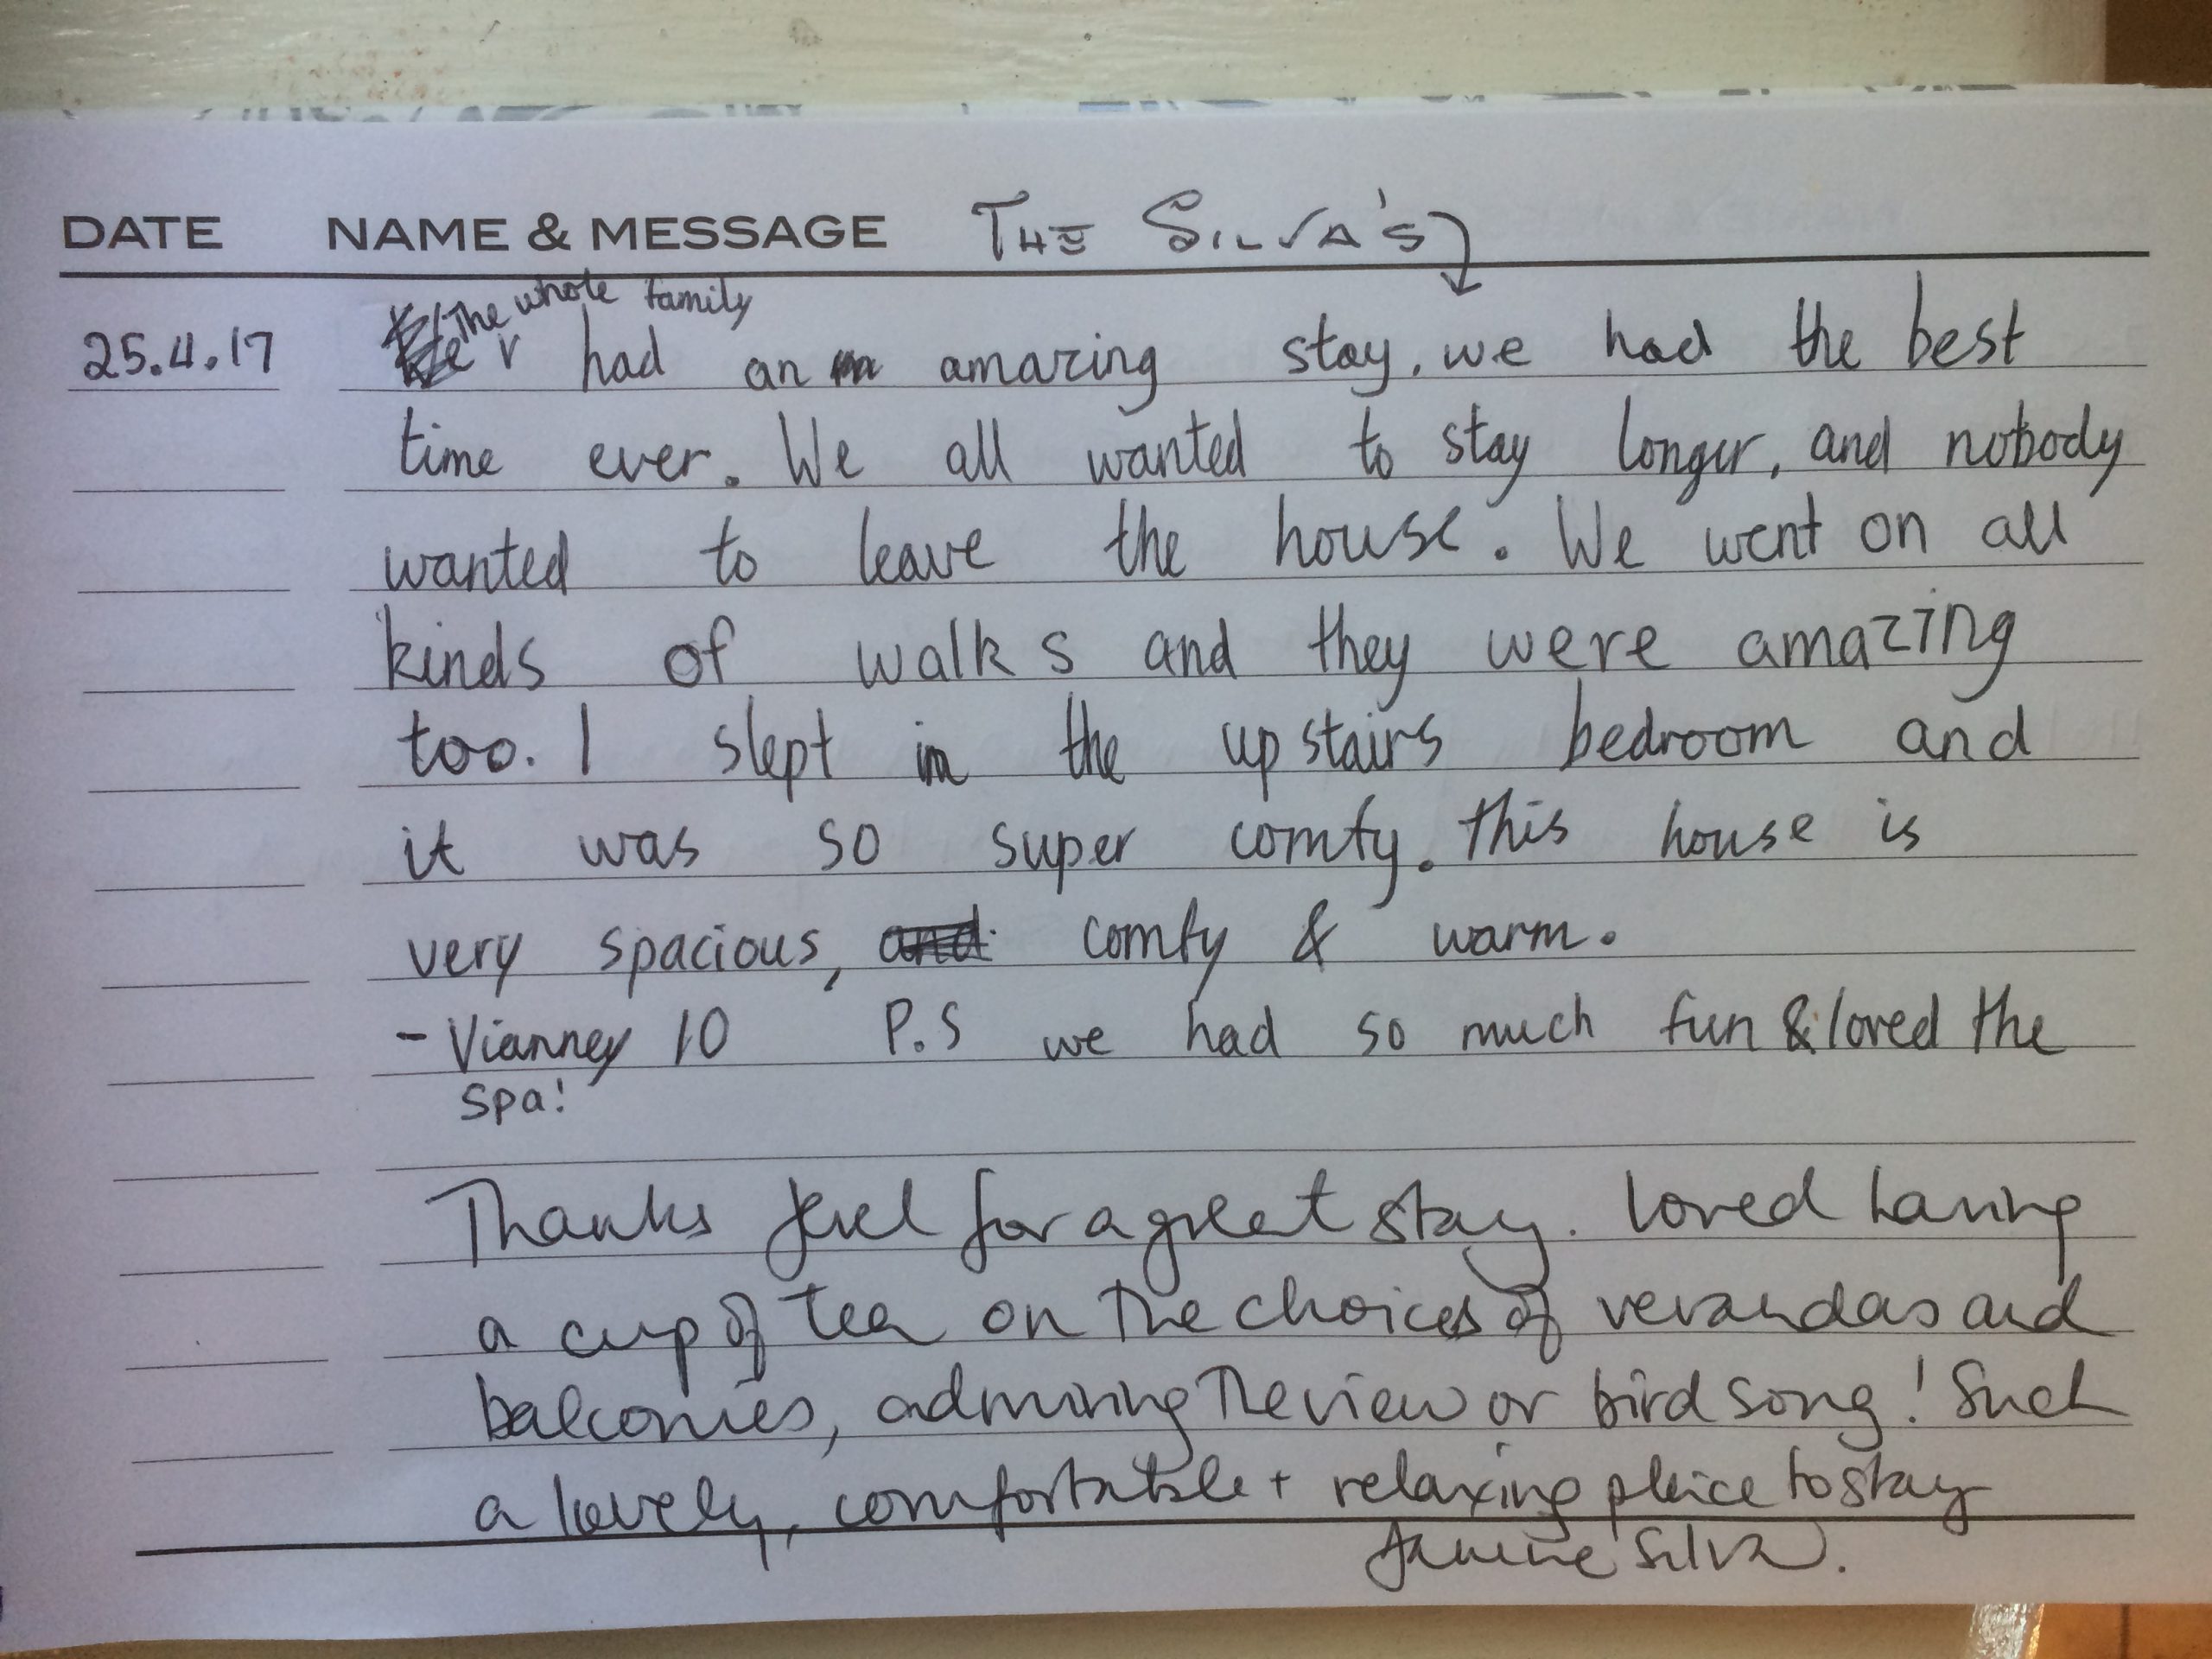 DATE NAME & MESSAGE THE SILVA'S
The whole family
25.4.17 had an amazing stay. we had the best
time ever. We all wanted to stay longer, and nobody
wanted to leave the house. We went on all
kinds of walks and they were amazing
too. I slept in the upstairs bedroom and
it was so super comfy. This house is
very spacious, and comfy & warm.
- Vianney 10 P.S we had so much fun & loved the
spa!
Thanks for a great stay. Loved having
a cup of tea on the choices of verandas and
balconies, admiring the view or bird song! Such
a lovely, comfortable + relaxing place to stay
Janine Silva.